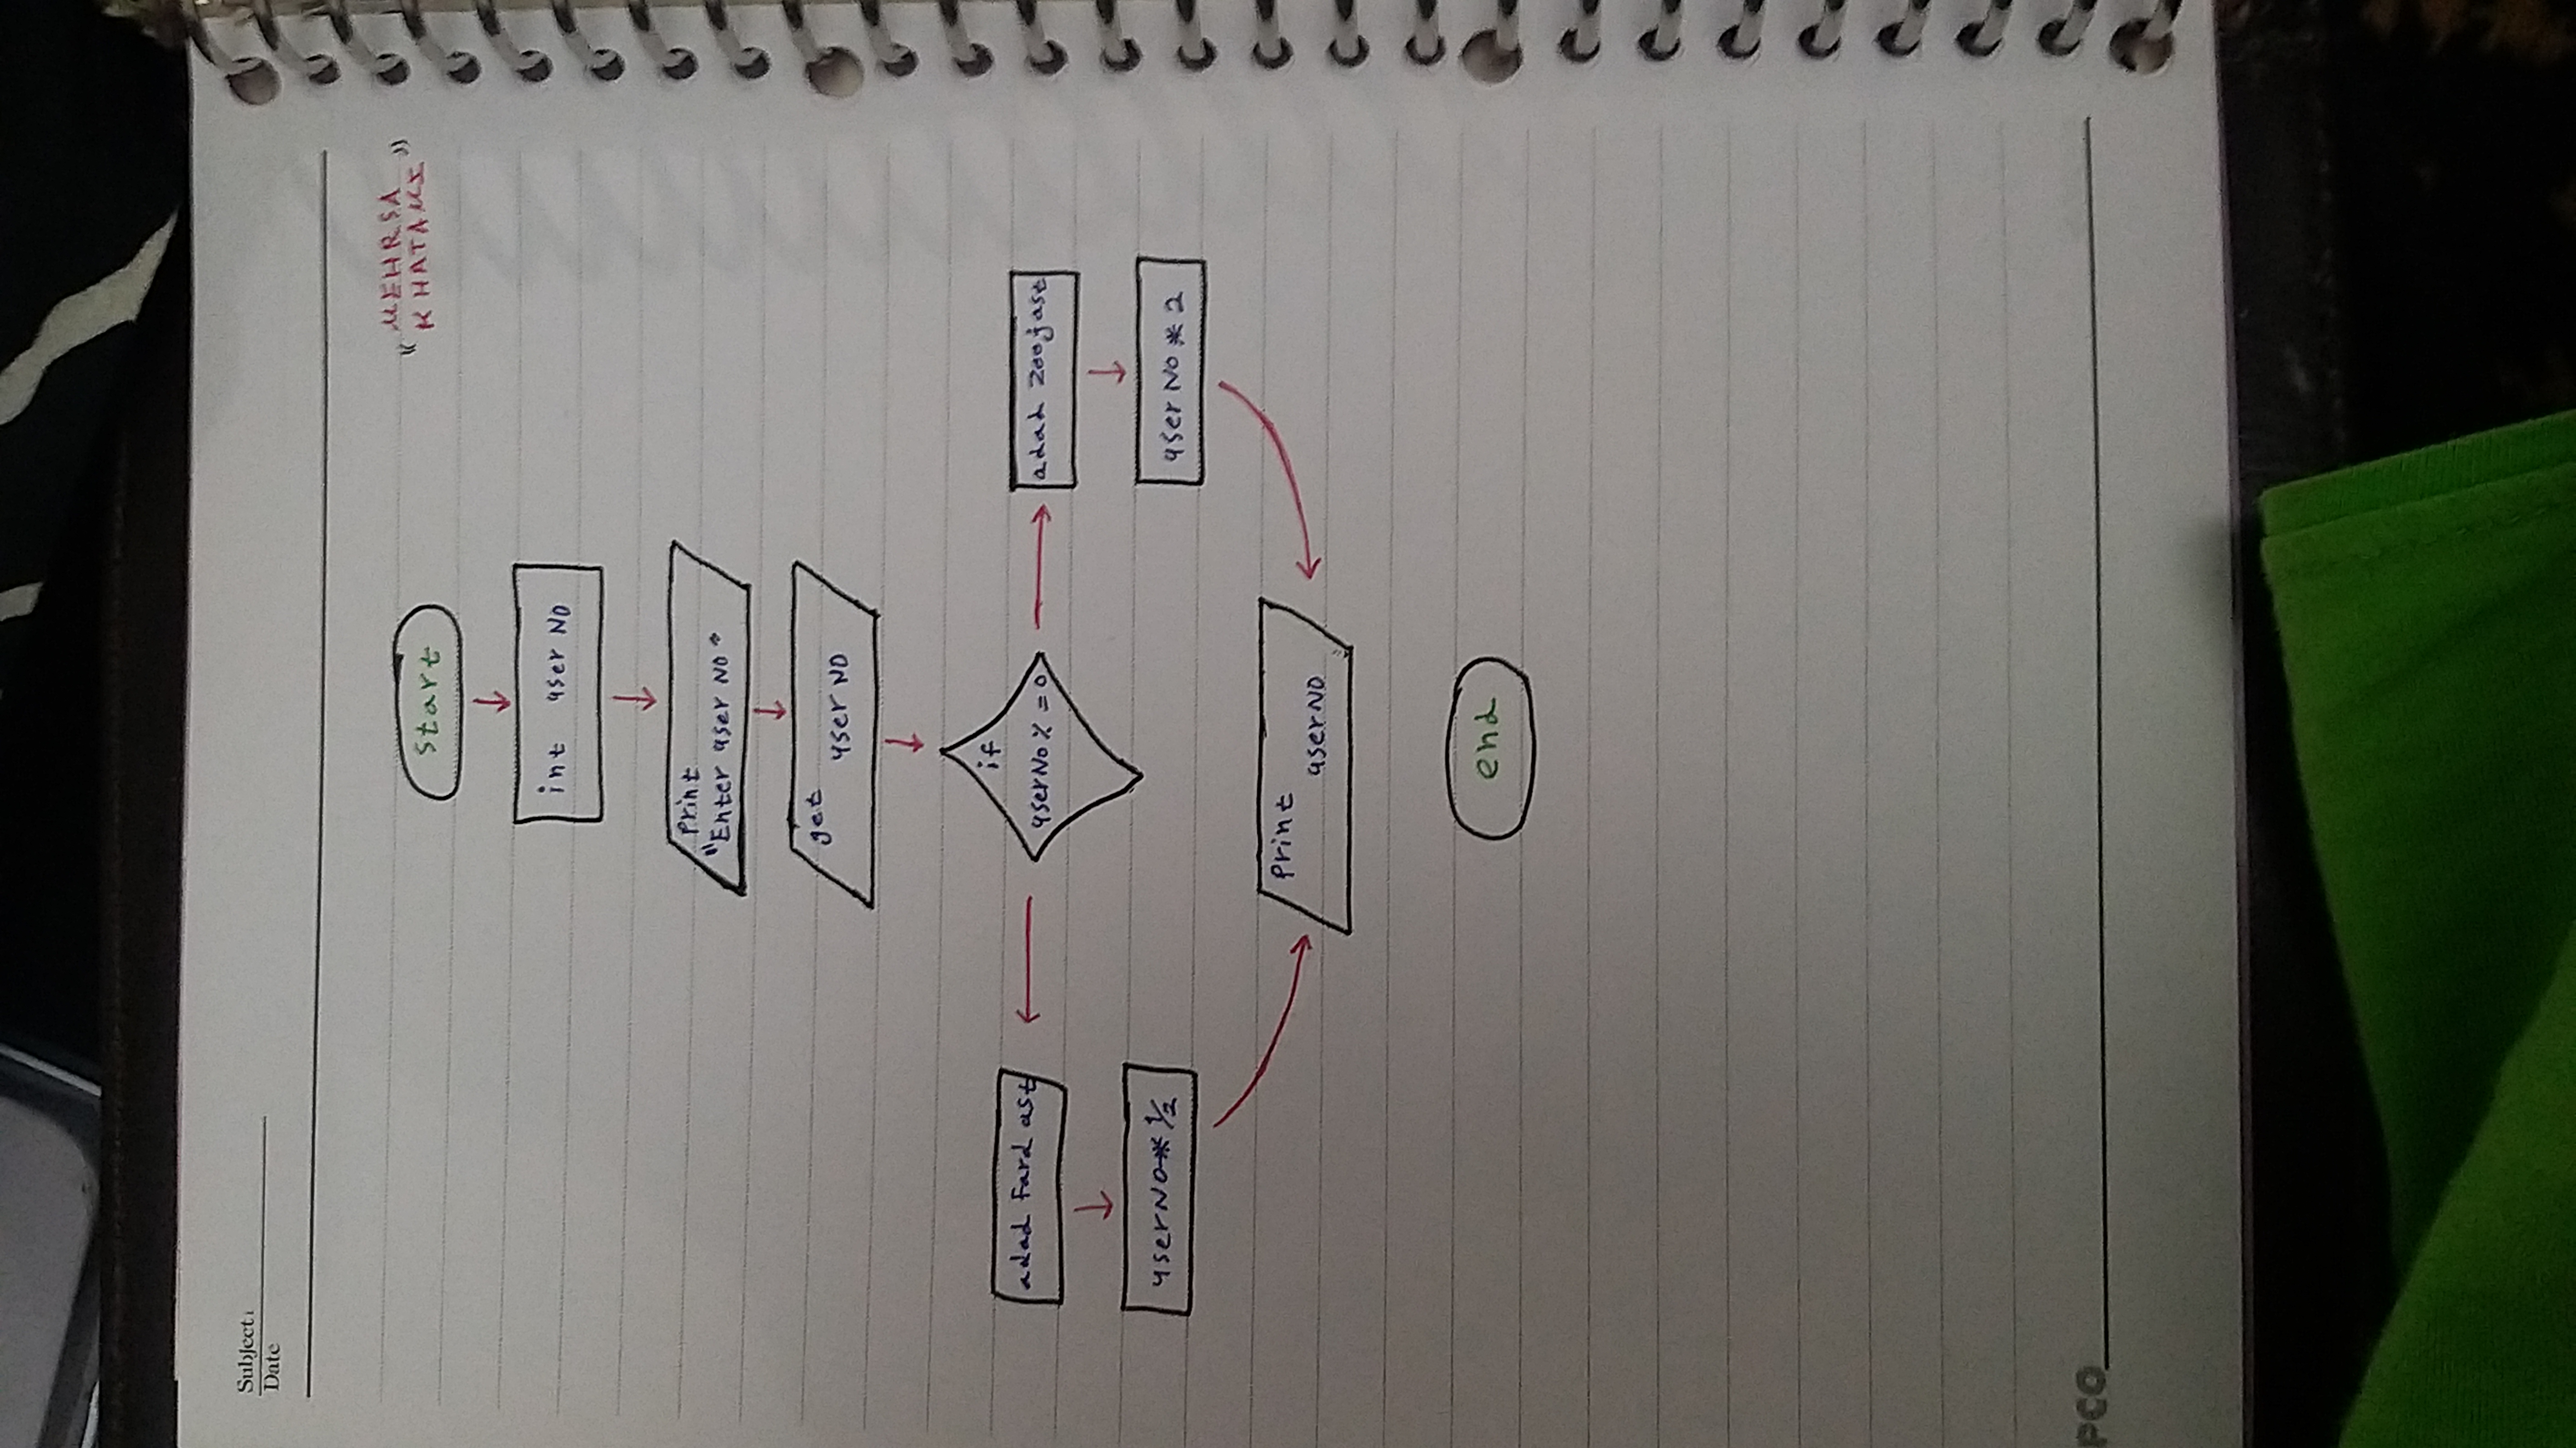 Subject:
Date
"MEHRSA
KHATAMI"
start
int user NO
Print
"Enter user NO"
get
user NO
if
userNo % = 0
adad Fard ast
adad zoojast
userNO * 1/2
user No * 2
Print
userNO
end
PCO